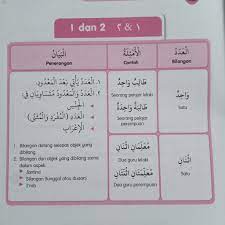 1 dan 2 ١ & ٢
الْبَيَانُ
Penerangan
الْأَمْثِلَةُ
Contoh
الْعَدَدُ
Bilangan
١. الْعَدَدُ يَأْتِي بَعْدَ الْمَعْدُودِ.
٢. الْعَدَدُ وَالْمَعْدُودُ مُتَسَاوِيَانِ فِي:
الْجِنْسِ
الْعَدَدِ (الْمُفْرَدِ وَالْمُثَنَّى)
الْإِعْرَابِ
1. Bilangan datang selepas objek yang
dibilang.
2. Bilangan dan objek yang dibilang sama
dalam aspek:
Jantina
Bilangan (tunggal atau duaan)
I'rab
طَالِبٌ وَاحِدٌ
Seorang pelajar lelaki
طَالِبَةٌ وَاحِدَةٌ
Seorang pelajar
perempuan
وَاحِدٌ
Satu
مُعَلِّمَانِ اثْنَانِ
Dua guru lelaki
مُعَلِّمَتَانِ اثْنَتَانِ
Dua guru perempuan
اثْنَانِ
Satu